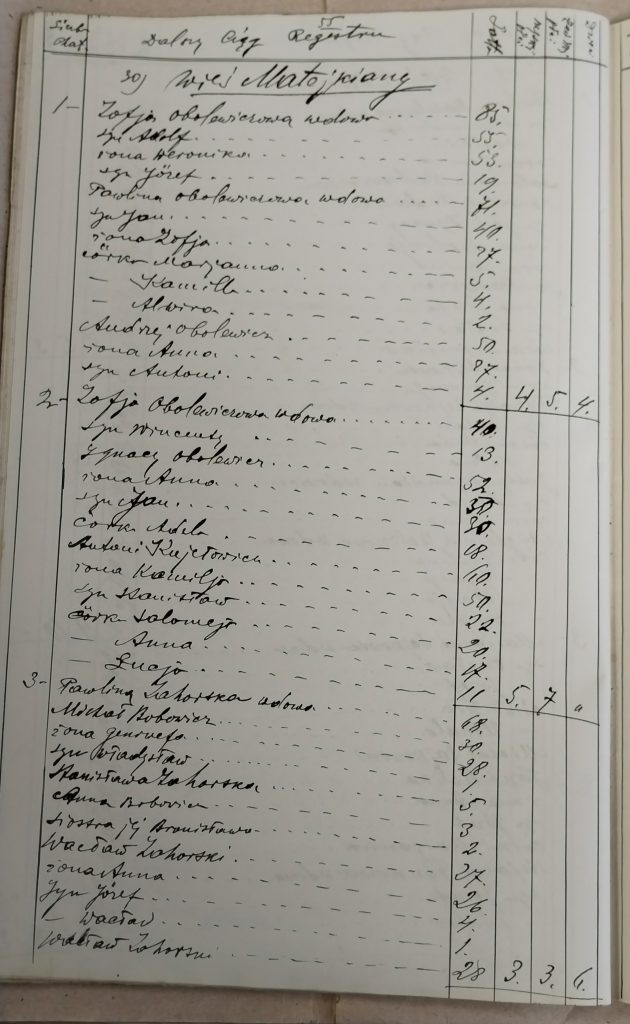 55
Dalszy Ciąg Regestru
Lata
30) Wieś Matejkiany
1- Zofja Obolewiczowa wdowa 85.
syn Adolf 55.
żona Weronika 53.
syn Józef 19.
Pawlina Obolewiczowa wdowa 71.
syn Jan 40.
żona Zofja 37.
córka Marjanna 5.
— Kamilla 4.
— Alwira 2.
Andrzej Obolewicz 50.
żona Anna 37.
syn Antoni 4. 4. 5. 4.
2- Zofja Obolewiczowa wdowa 40.
syn Wincenty 13.
Ignacy Obolewicz 52.
żona Anna
syn Jan 30.
córka Adela 18.
Antoni 60.
żona Kamilja 50.
syn Stanisław 22.
córka Salomeja 20.
— Anna 17.
— Łucja 11 5. 7 "
3- Pawlina Zahorska wdowa 68.
Michał Bobowicz 30.
żona Genowefa 28.
syn Władysław 1.
Stanisława Zahorska 5.
Anna Bobowicz 3
siostra jej Bronisława 2.
Wacław Zahorski 27.
żona Anna 26.
syn Józef 4.
— Wacław 1.
Wacław Zahorski 28 3. 3. 6.